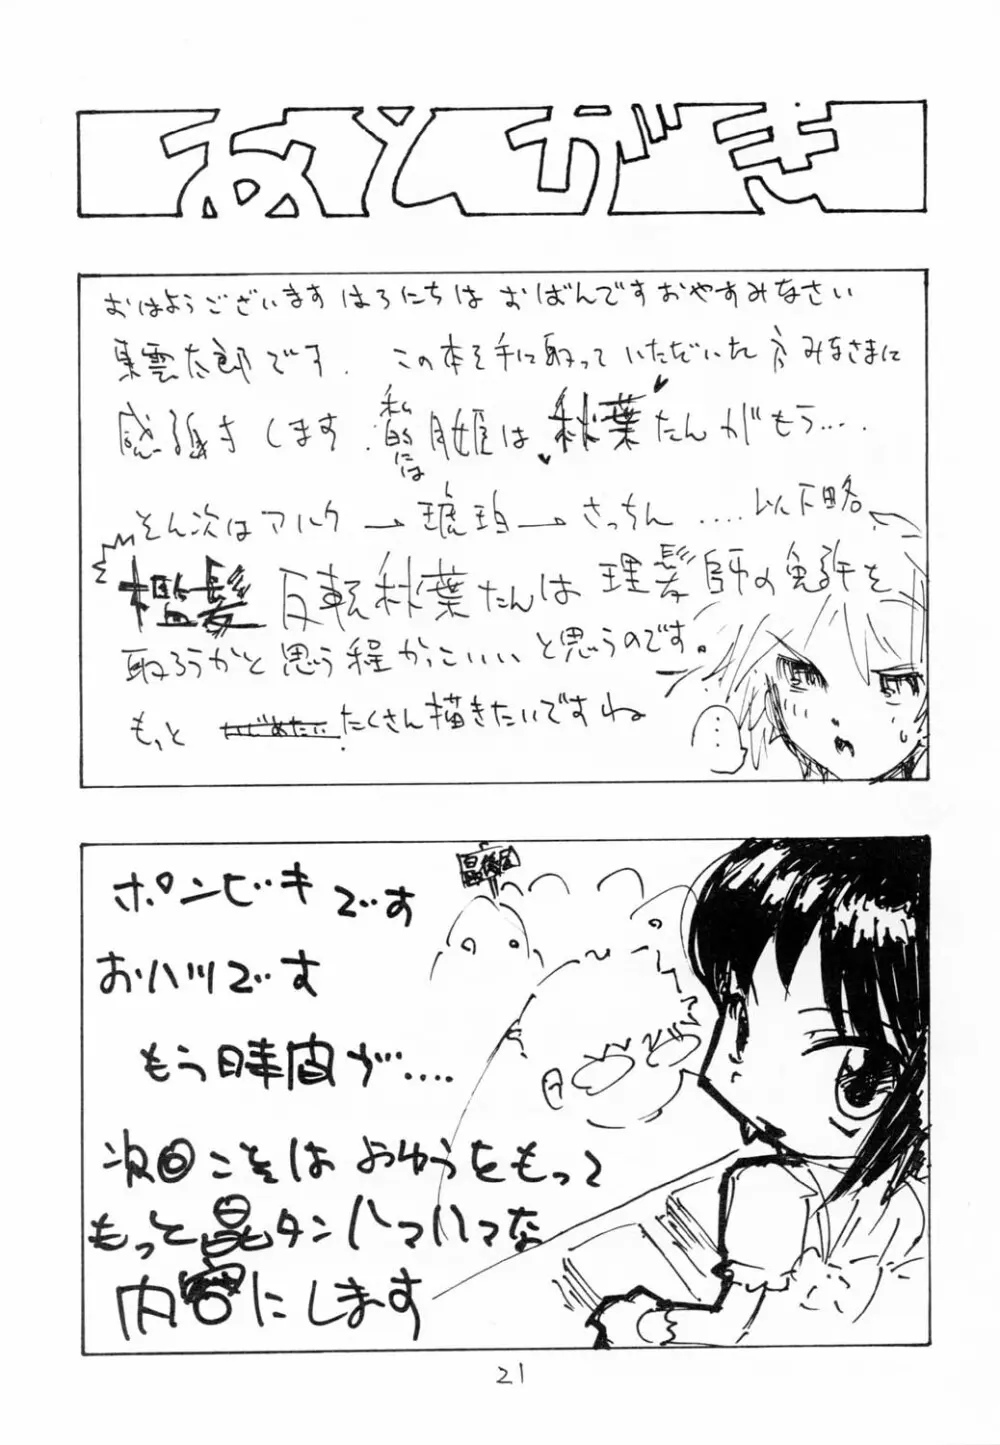 あとがき
おはようございます はろにちは おばんです おやすみなさい
東雲太郎です. この本を手に取っていただいた方みなさまに
感謝きします. 私的には月姫は秋葉たんがもう....
そん次はアルク→琥珀→さっちん....以下略
檻髪 反転秋葉たんは理髪師の免許を
取ろうかと思う程かっこいいと思うのです。
もっと いじめたい たくさん描きたいですね
…
最後尾
ポンビキです
おハツです
もう時間が....
わいわい
次回こそは おゆうをもって
もっと晶タンハァハァな
内容にします
21